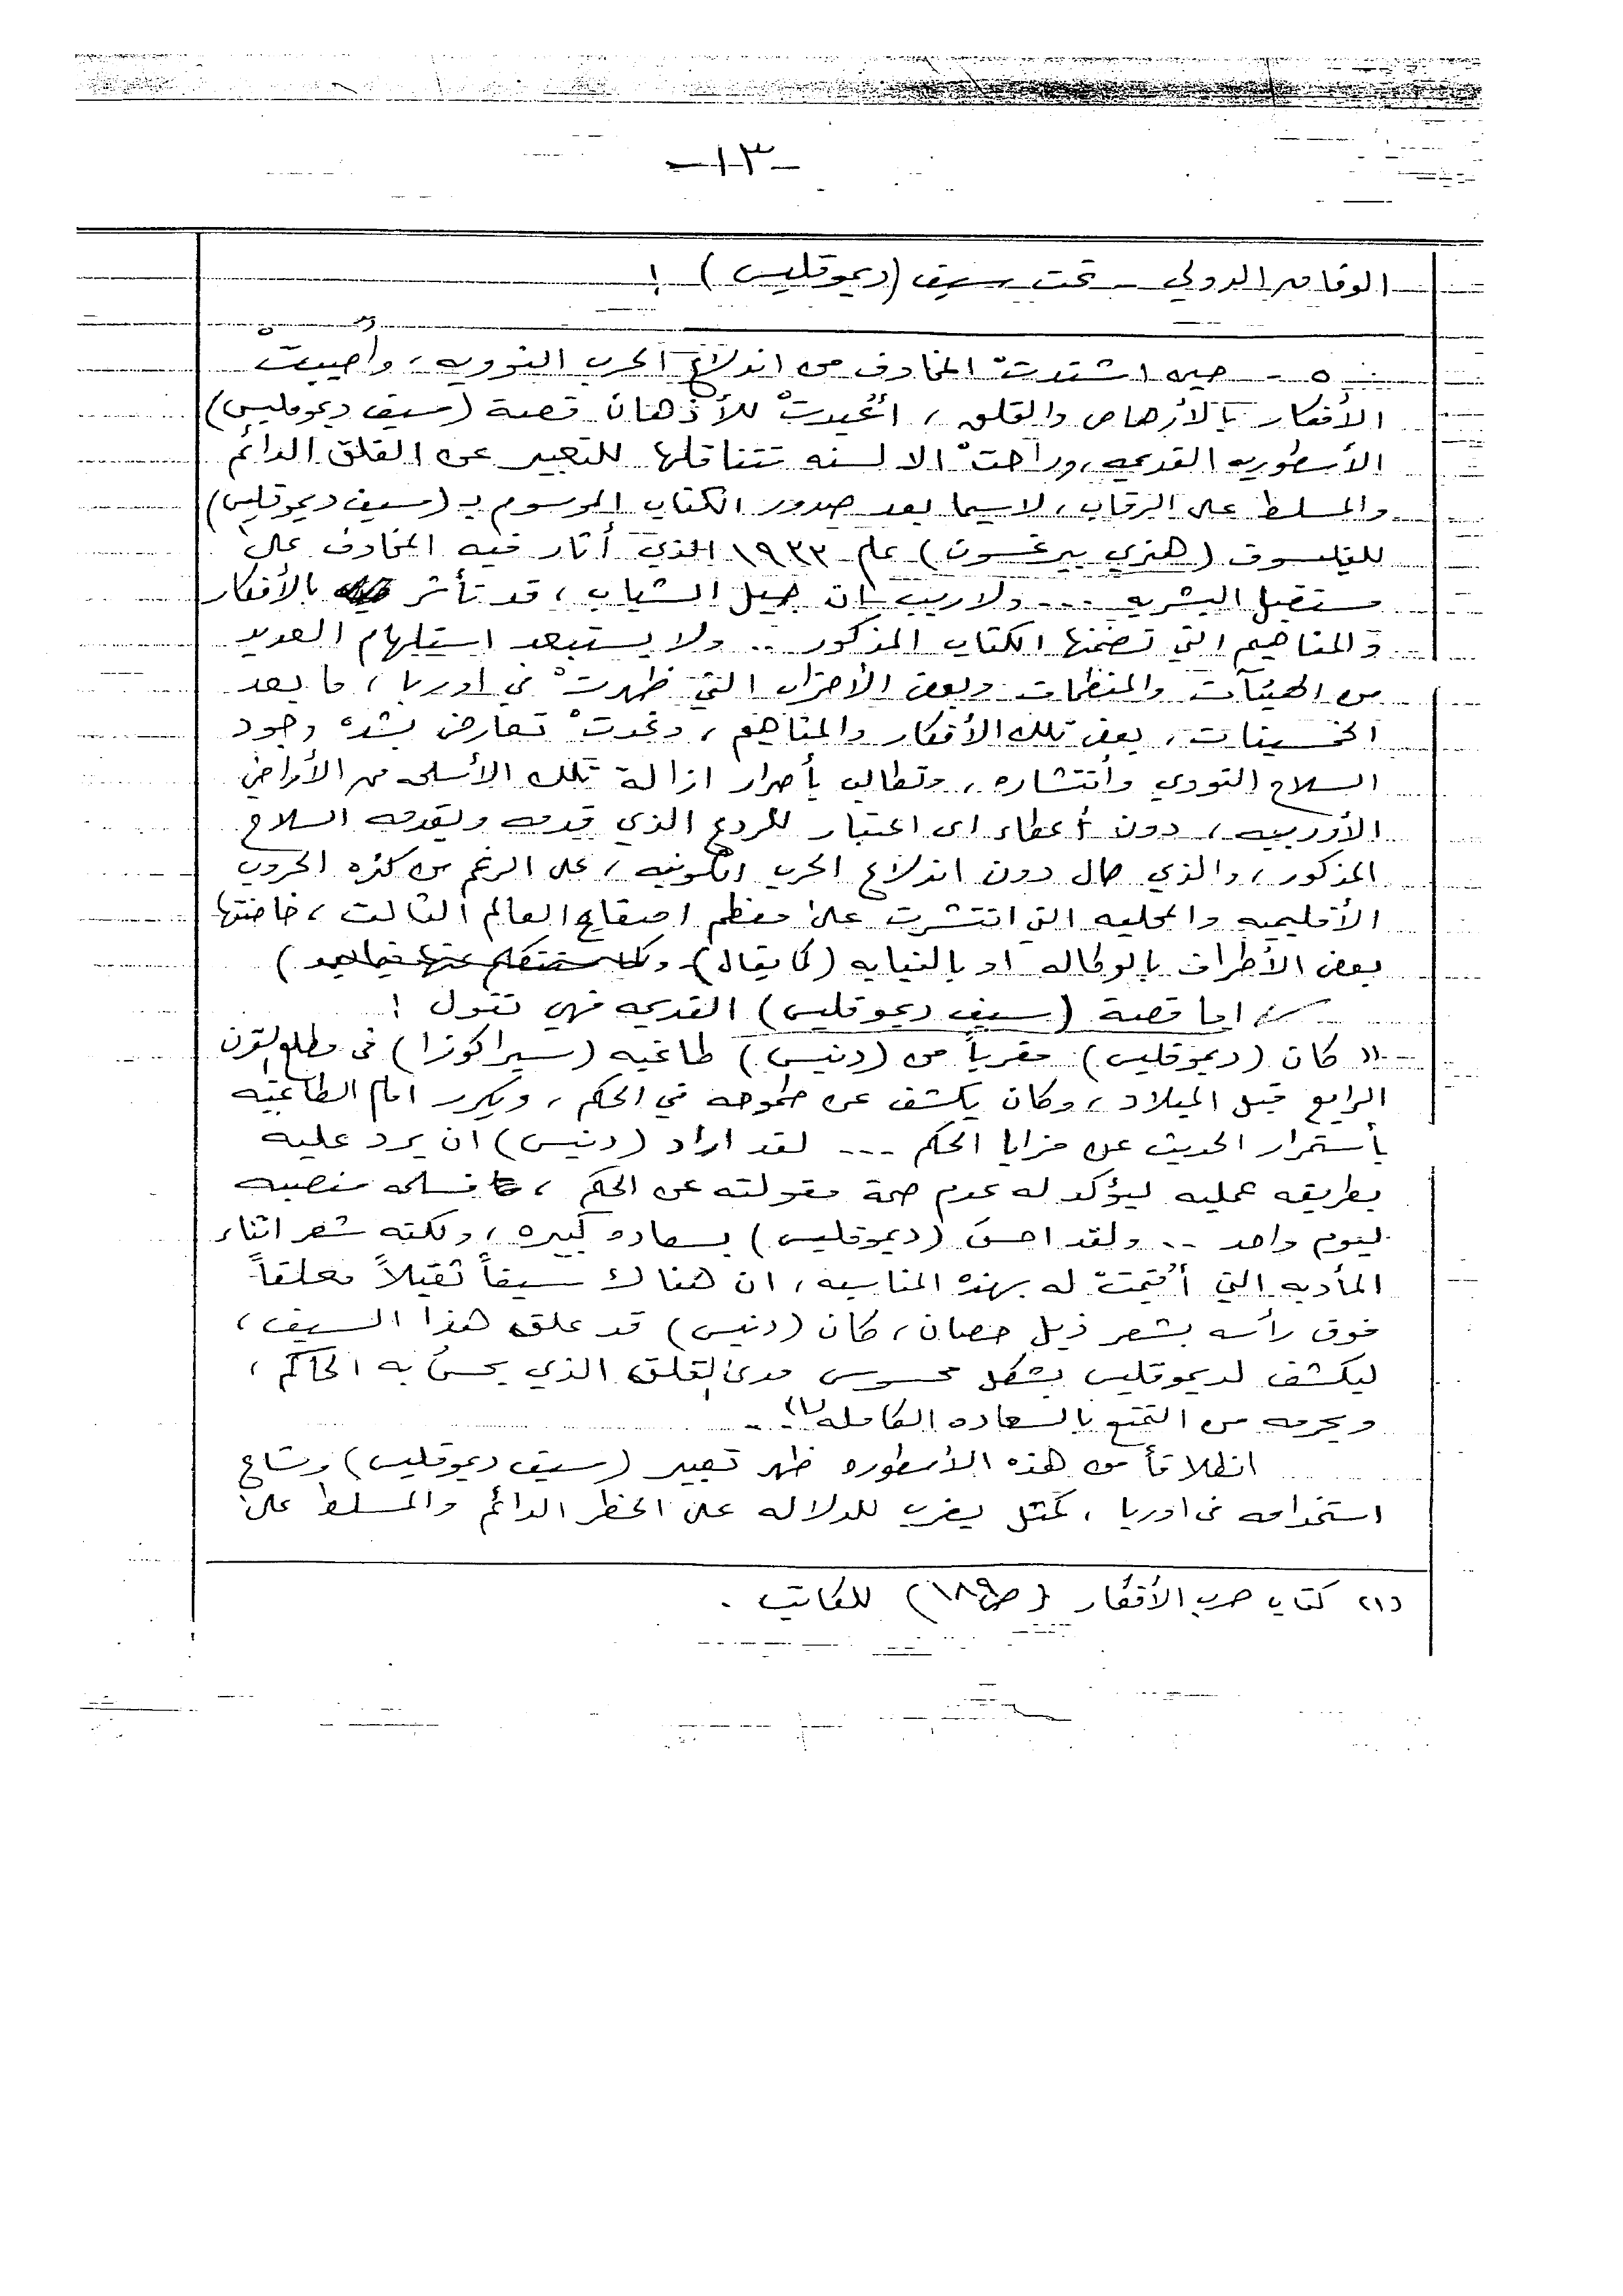 -١٣-
الوفاق الدولي - تحت سيف (ديموقليس) !
٥ - حين اشتدتْ المخاوف من اندلاع الحرب النوويه ، وأُصيبتْ
الأفكار بالأرهاص والقلق ، اُعيدتْ للأذهان قصة (سيف ديموقليس)
الأسطوريه القديمه ، وراحتْ الالسنه تتناقلها للتعبير عن القلق الدائم
والمسلط على الرقاب ، لاسيما بعد صدور الكتاب الموسوم بـ (سيف ديموقليس)
للفيلسوف (هنري بيرغسون) عام ١٩٣٣ الذي أثار فيه المخاوف على
مستقبل البشريه ... ولاريب ان جيل الشباب ، قد تأثر بالأفكار
والمفاهيم التي تضمنها الكتاب المذكور .. ولا يستبعد استلهام العديد
من الهيئآت والمنظمات وبعض الأحزاب التي ظهرتْ في اوربا ، ما بعد
الخمسينات ، بعض تلك الأفكار والمفاهيم ، وغدتْ تعارض بشده وجود
السلاح النووي وأنتشاره ، وتطالب بأصرار ازالة تلك الأسلحه من الأراضي
الأوربيه ، دون أعطاء اى اعتبار للردع الذي قدمه ويقدمه السلاح
المذكور ، والذي حال دون اندلاع الحرب الكونيه ، على الرغم من كثره الحروب
الأقليميه والمحليه التي انتشرت على معظم اصقاع العالم الثالث ، خاضتها
بعض الأطراف بالوكاله او بالنيابه (كما يقال) - وكما سنتكلم عنها فيما بعد )
اما قصة (سيف ديموقليس) القديمه فهي تقول !
" كان (ديموقليس) مقرباً من (دنيس) طاغيه (سيراكوزا) في مطلع القرن
الرابع قبل الميلاد ، وكان يكشف عن طموحه في الحكم ، ويكرر امام الطاغيه
بأستمرار الحديث عن مزايا الحكم ... لقد اراد (دنيس) ان يرد عليه
بطريقه عمليه ليؤكد له عدم صحة مقولته عن الحكم ، فسلمه منصبه
ليوم واحد .. ولقد احسَ (ديموقليس) بسعاده كبيره ، ولكنه شعر اثناء
المأدبه التي أُقيمتْ له بهذه المناسبه ، ان هناك سيفاً ثقيلاً معلقاً
فوق رأسه بشعر ذيل حصان ، كان (دنيس) قد علق هذا السيف ،
ليكشف لديموقليس بشكل محسوس مدى القلق الذي يحسُ به الحاكم ،
ويحرمه من التمتع بالسعاده الكامله (١) ..
انطلاقاً من هذه الأسطوره ظهر تعبير (سيف ديموقليس) وشاع
استخدامه في اوربا ، كمثل يضرب للدلاله على الخطر الدائم والمسلط على
(١) كتاب حرب الأفكار (ص١٨٩) للكاتب .